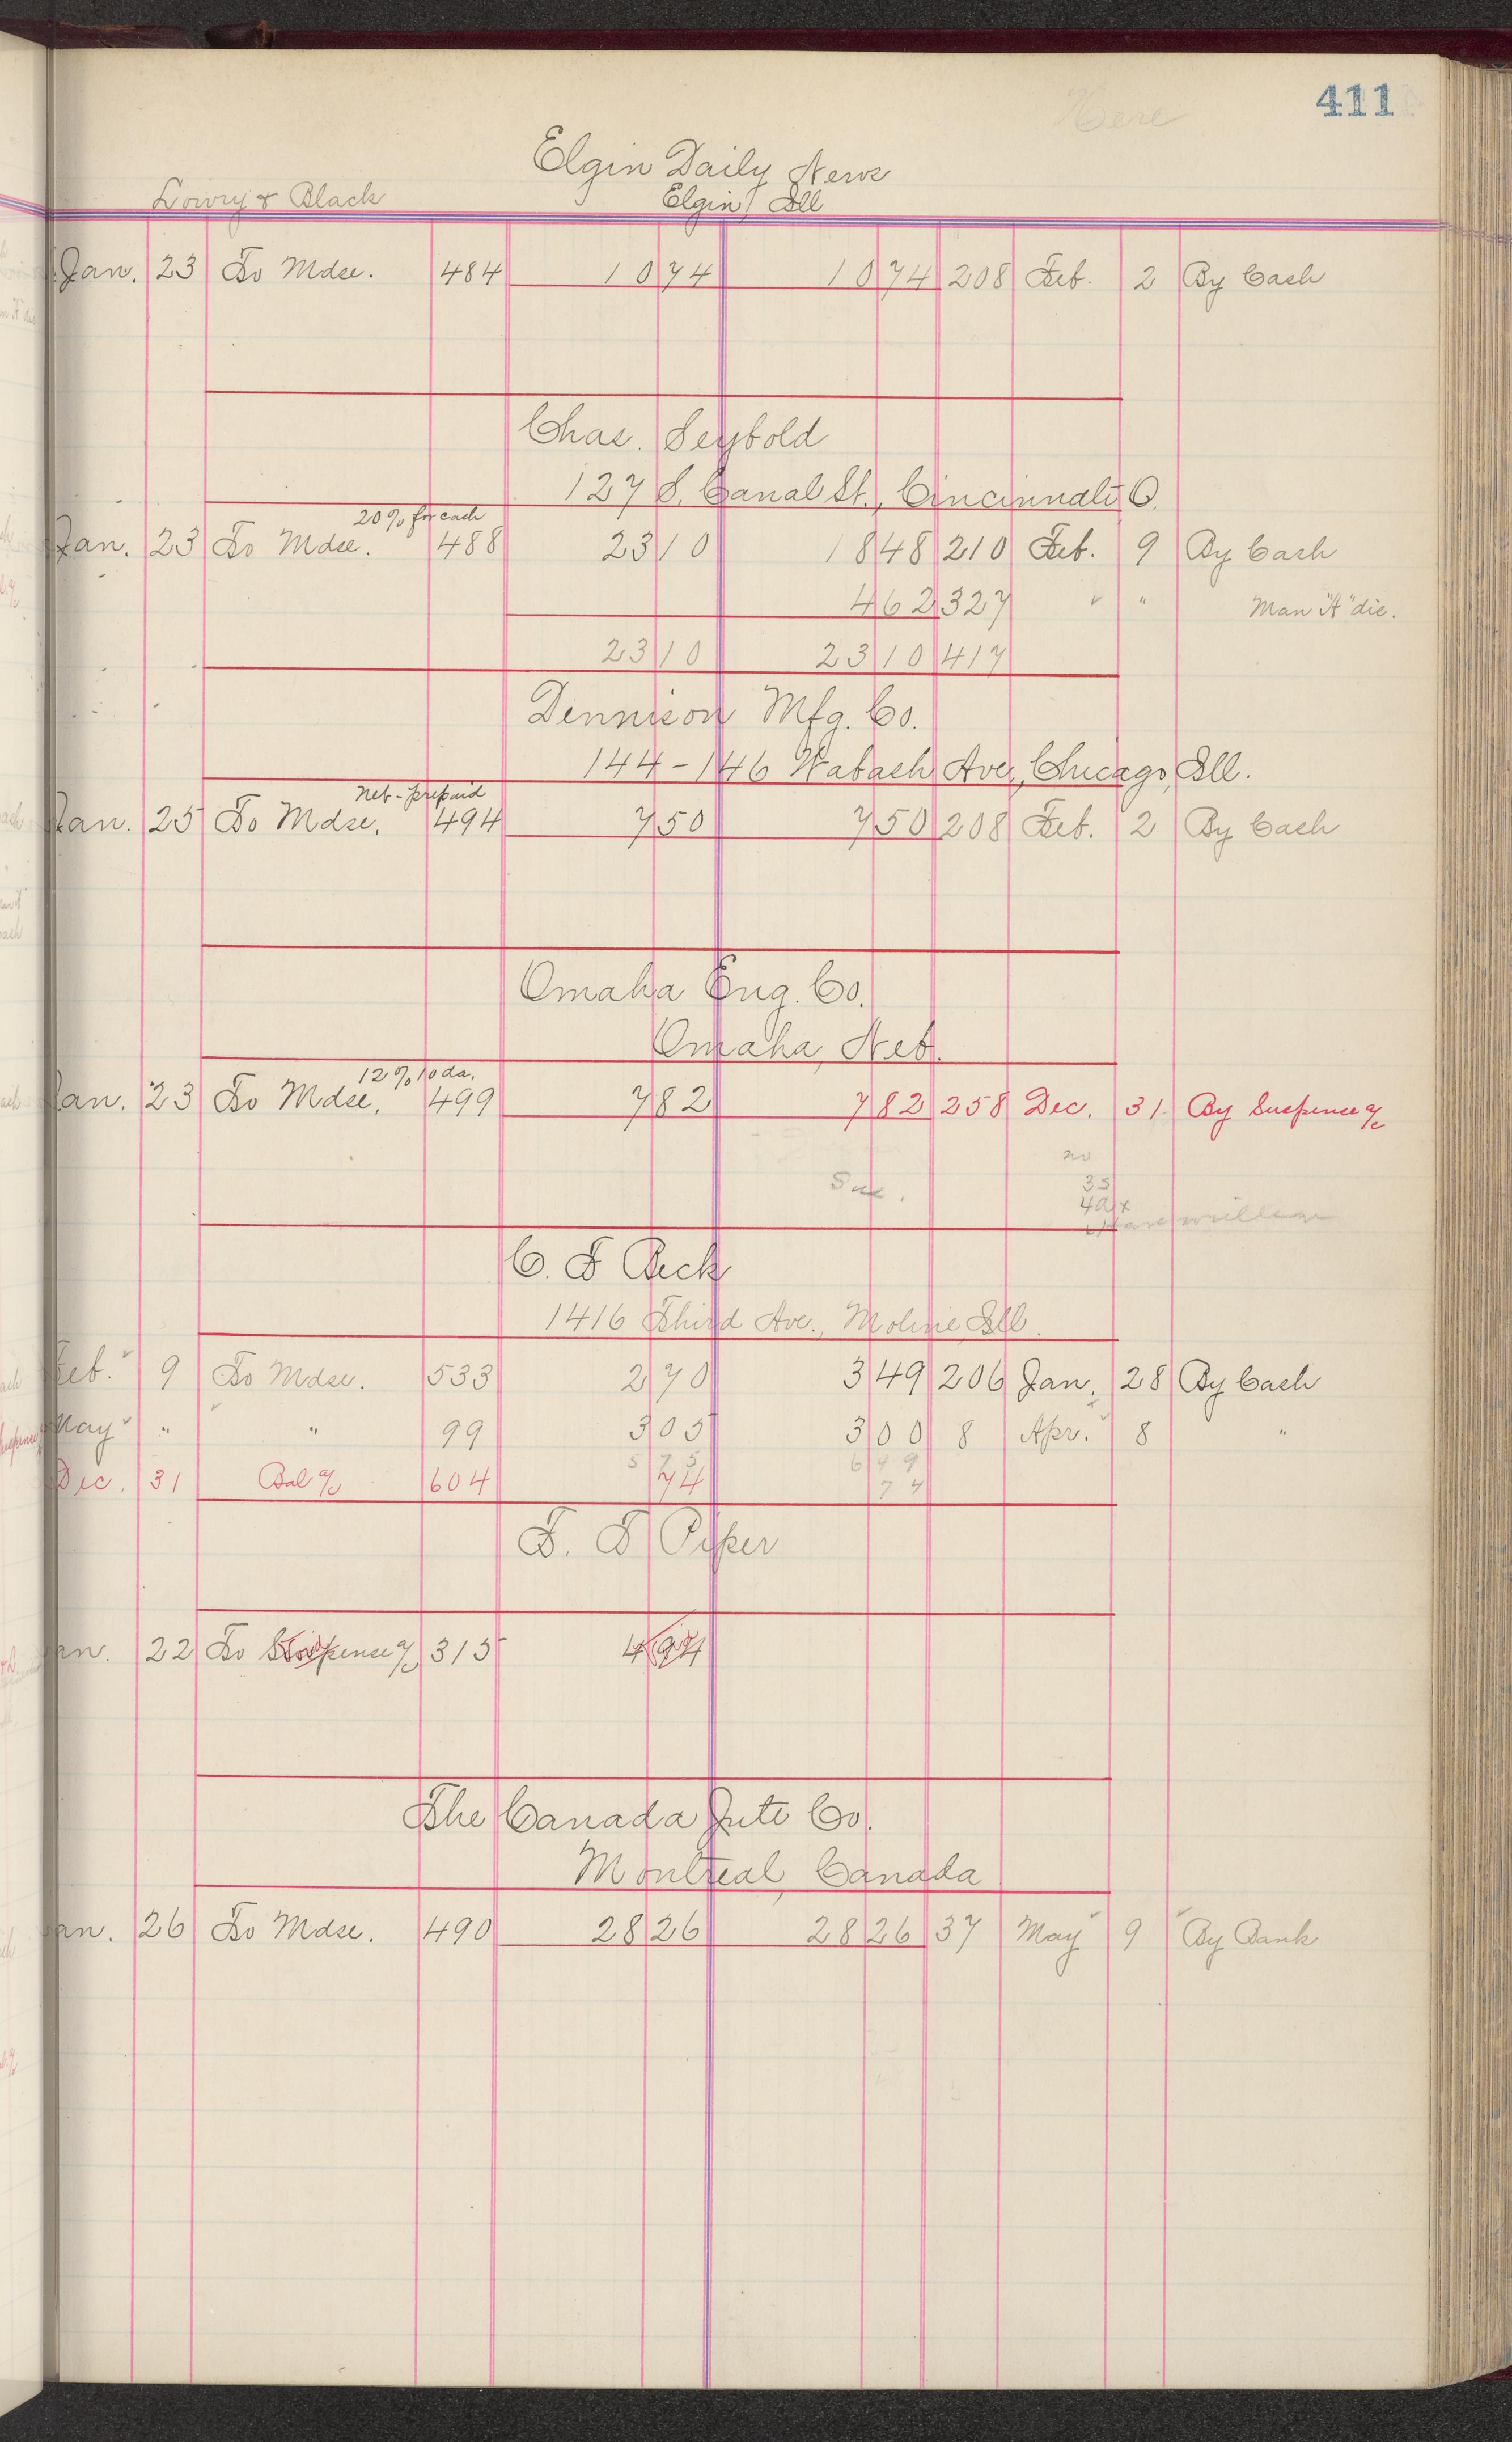 411
Here
Elgin Daily News
Lowry & Black Elgin, Ill
Jan. 23 To Mdse. 484 10 74 10 74 208 Feb. 2 By Cash
Chas. Seybold
127 S. Canal St., Cincinnati O.
20% for cash
Jan. 23 To Mdse. 488 23 10 18 48 210 Feb. 9 By Cash
4 62 327 " " Man "A" dis.
23 10 23 10 417
Dennison Mfg. Co.
144-146 Wabash Ave, Chicago, Ill.
net-prepaid
Jan. 25 To Mdse. 494 7 50 7 50 208 Feb. 2 By Cash
Omaha Eng. Co.
Omaha, Neb.
12% 10 da.
Jan. 23 To Mdse. 499 7 82 7 82 258 Dec. 31 By Suspense a/c
no
35
Sue.
C. F Beck
1416 Third Ave., Moline Ill.
Feb. 9 To Mdse. 533 2 70 3 49 206 Jan. 28 By Cash
May " " 99 3 05 3 00 8 Apr. 8 "
5 75 6 49
Dec. 31 Bal a/c 604 74 74
F. F Piper
an. 22 To Suspense a/c 315 4 94
The Canada Jute Co.
Montreal, Canada
an. 26 To Mdse. 490 28 26 28 26 37 May 9 By Bank